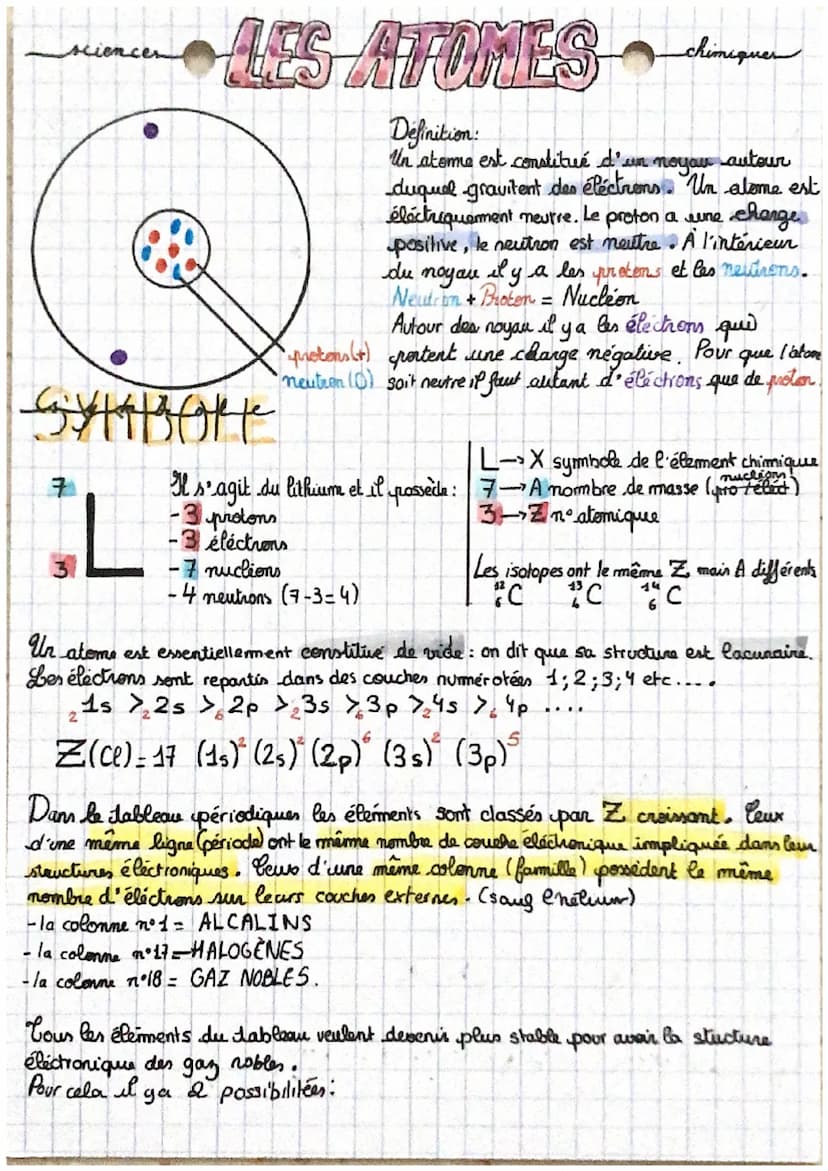 sciences LES ATOMES chimiques
Définition:
Un atome est constitué d'un noyau autour
duquel gravitent des éléctrons. Un atome est
éléctriquement neutre. Le proton a une charge
positive, le neutron est neutre. À l'intérieur
du noyau il y a les protons et les neutrons.
Neutron + Proton = Nucléon
Autour des noyau il y a les électrons qui
portent une charge négative. Pour que l'atome
soit neutre il faut autant d'éléctrons que de proton.
protons (+)
neutron (0)
SYMBOLE
7
3
L
Il s'agit du lithium et il possède:
-3 protons
-3 éléctrons
-7 nuclions
-4 neutrons (7-3=4)
L→X symbole de l'élement chimique
7→A nombre de masse (pro + élect) nucléons
3→Z n° atomique
Les isotopes ont le même Z mais A différents
¹²₆C ¹³₆C ¹⁴₆C
Un atome est essentiellement constitué de vide: on dit que sa structure est lacunaire.
Les éléctrons sont repartis dans des couches numérotées 1;2;3;4 etc....
₂1s >₂2s >₆2p >₂3s >₆3p >₂4s >₆4p ....
Z(Cl)=17 (1s)² (2s)² (2p)⁶ (3s)² (3p)⁵
Dans le tableau périodiques les éléments sont classés par Z croissant. Ceux
d'une même ligne (période) ont le même nombre de couche éléctronique impliquée dans leur
structures éléctroniques. Ceux d'une même colonne (famille) possèdent le même
nombre d'éléctrons sur leurs couches externes. (sauf l'hélium)
-la colonne n°1 = ALCALINS
-la colonne n°17 = HALOGÈNES
-la colonne n°18 = GAZ NOBLES.
Tous les élements du tableau veulent devenir plus stable pour avoir la stucture
éléctronique des gaz nobles.
Pour cela il ya 2 possibilitées: